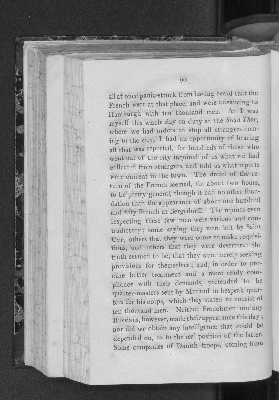 90
all at once panic-struck from having heard that the
French were at that place, and were advancing to
Hamburgh with ten thousand men. As I was
myself this whole day on duty at the Stein Thor,
where we had orders to stop all strangers com-
ing to the city, I had an opportunity of hearing
all that was reported, for hundreds of those who
went out of the city inquired of us what we had
collected from strangers, and told us what reports
were current in the town. The dread of the re-
turn of the French seemed, for about two hours,
to be pretty general, though it had no other foun-
dation than the appearance of about one hundred
and fifty French in Bergedorff. The reports even
respecting these few men were various and con-
tradictory; some saying they were left by Saint
Cyr, others that they were come to make requisi-
tions, and others that they were deserters: the
truth seemed to be, that they were merely seeking
provisions for themselves; and, in order to pro-
cure better treatment and a more ready com-
pliance with their demands, pretended to be
quarter-masters sent by Morand to bespeak quar-
ters for his corps, which they stated to consist of
ten thousand men. Neither Frenchmen nor any
Russians, however, made their appearance this day;
nor did we obtain any intelligence that could be
depended on, as to the real position of the latter.
Some companies of Danish troops, coming from